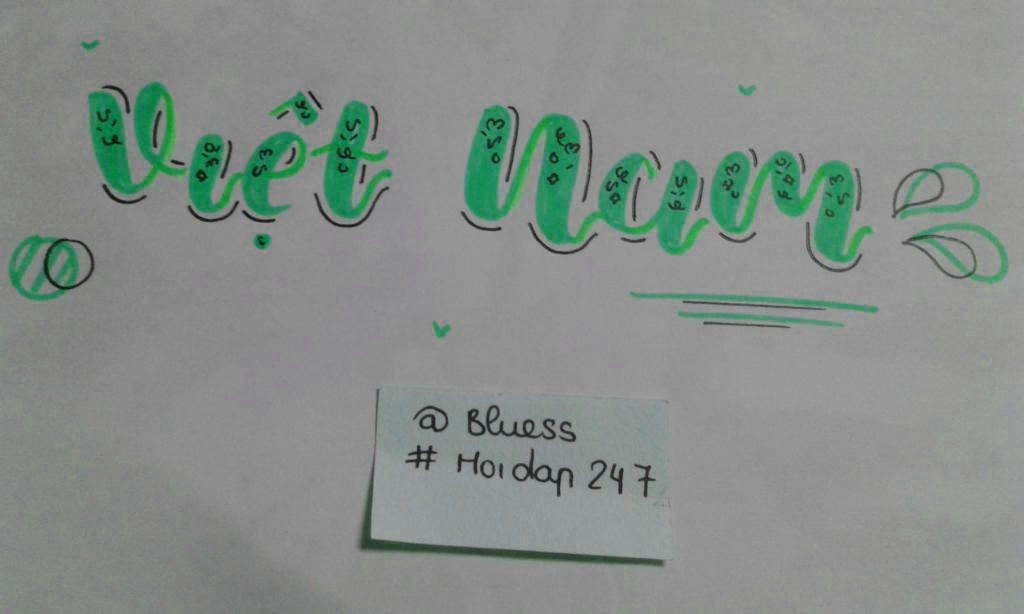 Việt Nam
@ Bluess
# Hoidap 247